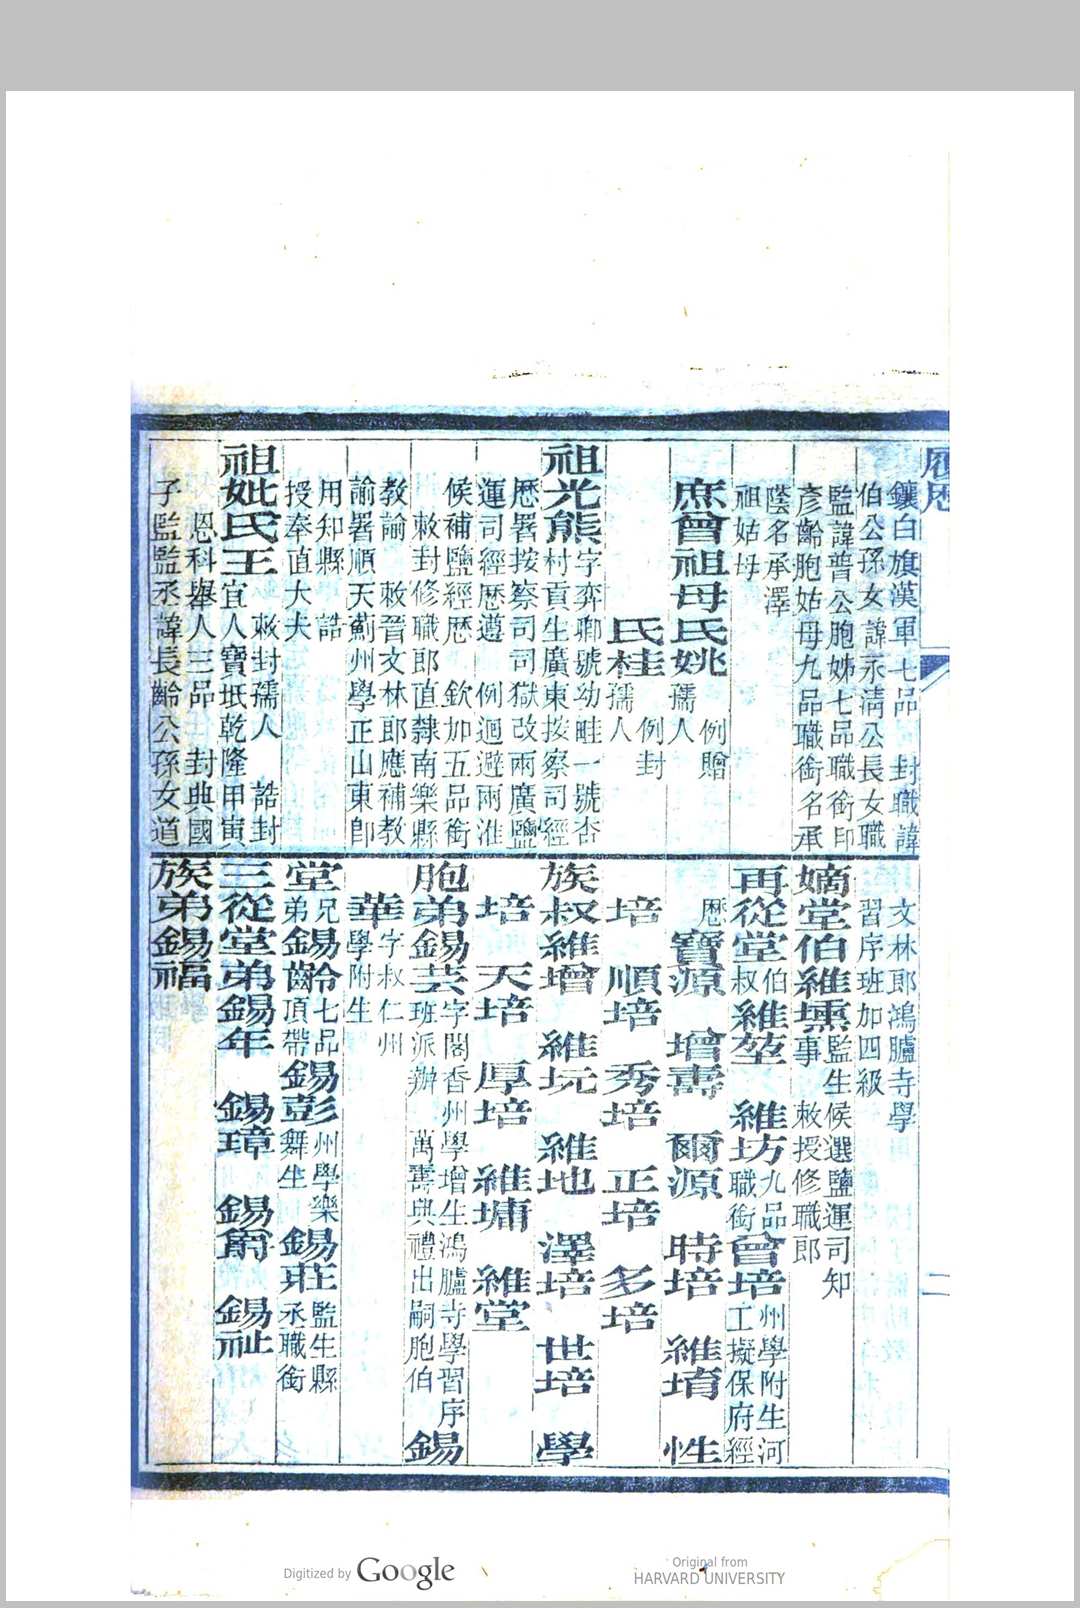 鑲白旗漢軍七品 封職諱
伯公孫女諱永淸公長女職
監諱普公胞姊七品職銜印
彥齡胞姑母九品職銜名承
蔭名承澤
祖姑母
庶曾祖母氏姚孺人 例贈
氏桂孺人 例封
祖光熊字弈聊號幼畦一號杏
村貢生廣東按察司經
歷署按察司司獄改兩廣鹽
運司經歷遵 例迴避兩淮
候補鹽經歷 欽加五品銜
敕封修職郎直隸南樂縣
教諭 敕晉文林郎應補教
諭署順天薊州學正山東卽
用知縣 誥
授奉直大夫
祖妣氏王 敕封孺人 誥封
宜人寶坻乾隆甲寅
恩科舉人三品 封典國
子監監丞諱長齡公孫女道
文林郎鴻臚寺學
習序班加四級
嫡堂伯維壎監生候選鹽運司知
事 敕授修職郎
再從堂伯叔維堃 維坊九品職銜曾培州學附生河工擬保府經
歷寶源 增壽 爾源 時培 維堉 性
培 順培 秀培 正培 多培
族叔維增 維坃 維地 澤培 世培 學
培 天培 厚培 維墉 維堂
胞弟錫芸字閣香州學增生鴻臚寺學習序
班派辦 萬壽典禮出嗣胞伯 錫
華字叔仁州
學附生
堂兄弟錫齡七品頂帶錫彭州學樂舞生錫莊監生縣丞職銜
三從堂弟錫年 錫璋 錫爵 錫祉
族弟錫福
二
Digitized by Google
Original from
HARVARD UNIVERSITY